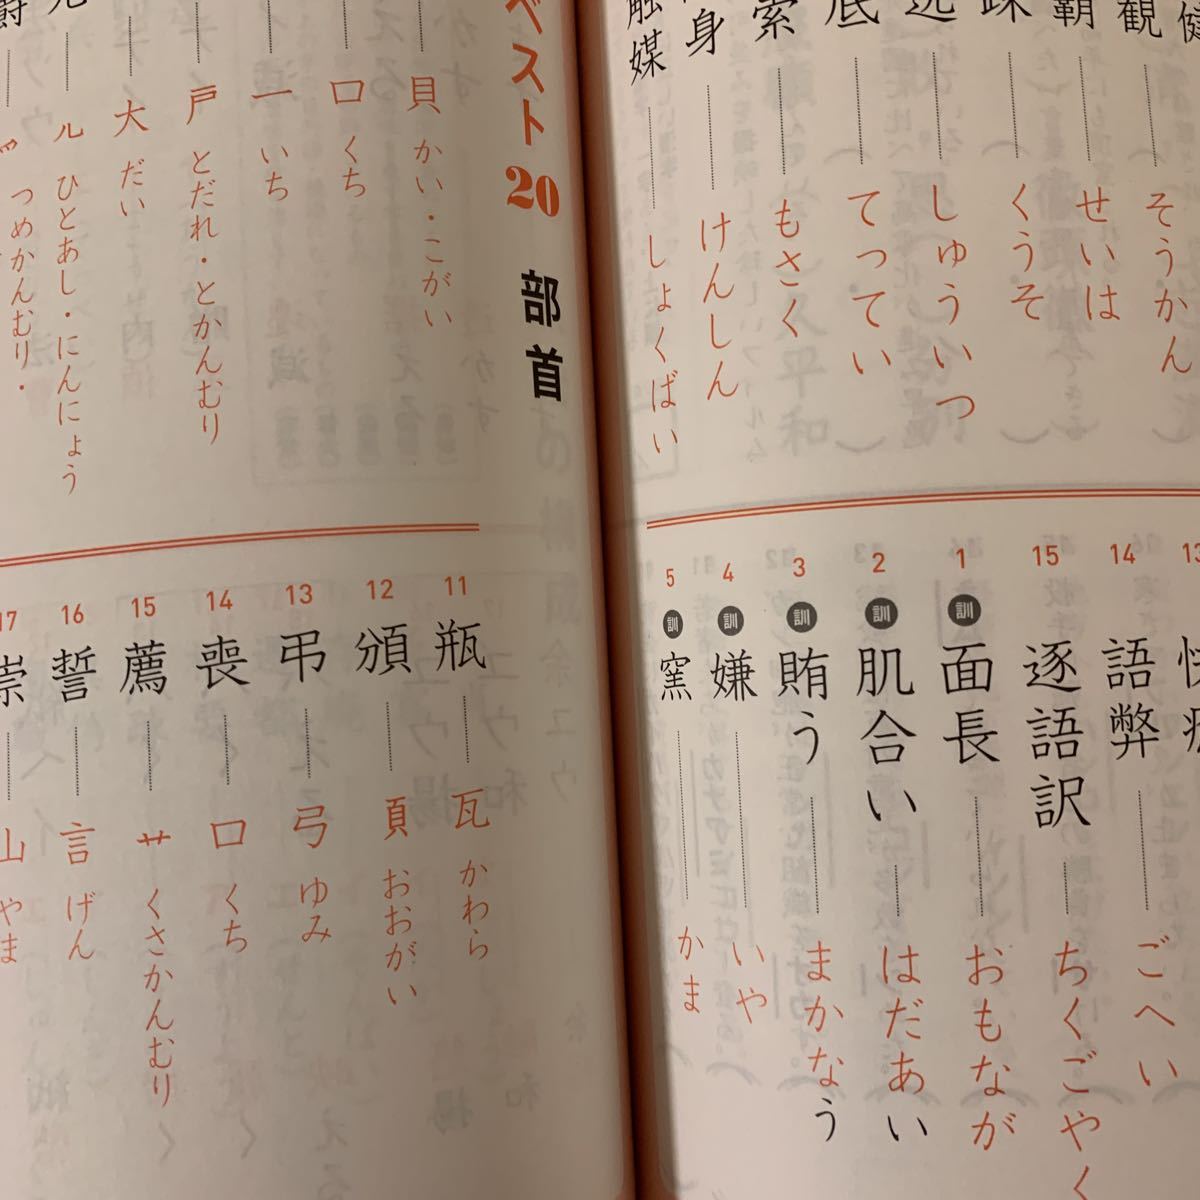 観 そうかん
覇 せいは
くうそ
しゅういつ
底 てってい
索 もさく
身 けんしん
触媒 しょくばい
13
14 語弊 ごへい
15 逐語訳 ちくごやく
1 訓 面長 おもなが
2 訓 肌合い はだあい
3 訓 賄う まかなう
4 訓 嫌 いや
5 訓 窯 かま
ベスト20 部首
貝 かい・こがい
口 くち
一 いち
戸 とだれ・とかんむり
大 だい
儿 ひとあし・にんにょう
つめかんむり・
11 瓶 瓦 かわら
12 頒 頁 おおがい
13 弔 弓 ゆみ
14 喪 口 くち
15 薦 艹 くさかんむり
16 誓 言 げん
17 崇 山 やま